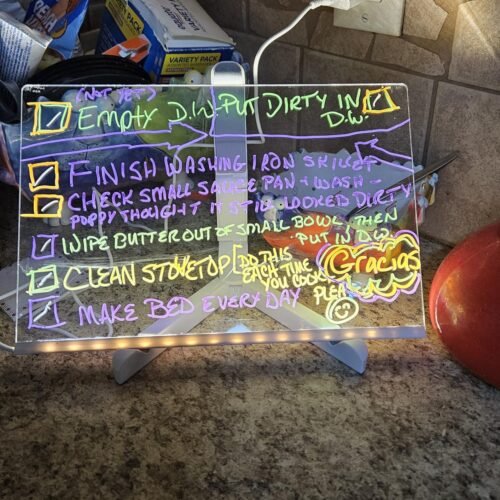 VARIETY PACK
VARIETY PACK
(NOT YET)
EMPTY D.W. PUT DIRTY IN D.W.
FINISH WASHING IRON SKILLET
CHECK SMALL SAUCE PAN + WASH -
POPPY THOUGHT IT STILL LOOKED DIRTY
WIPE BUTTER OUT OF SMALL BOWL THEN
PUT IN D.W.
CLEAN STOVETOP [DO THIS
EACH TIME
YOU COOK
PLEASE
Gracias
MAKE BED EVERY DAY